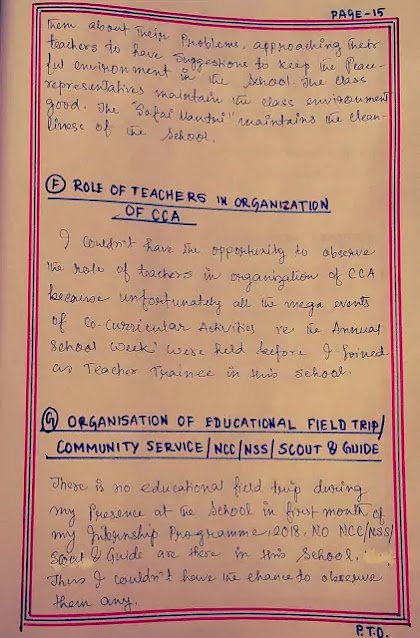 PAGE-15
them about their Problems, approaching their
teachers to have Suggestions to keep the Peace-
ful environment in the School. The class
representatives maintain the class environment
good. The "Safai Mantri" maintains the clean-
liness of the School.
(F) ROLE OF TEACHERS IN ORGANIZATION
OF CCA
I couldn't have the opportunity to observe
the role of teachers in organization of CCA
because unfortunately all the mega events
of Co-Curricular Activities i.e. the 'Annual
School Week' were held before I joined
as Teacher Trainee in this School.
(G) ORGANISATION OF EDUCATIONAL FIELD TRIP/
COMMUNITY SERVICE/NCC/NSS/SCOUT & GUIDE
There is no educational field trip during
my Presence at the School in first month of
my Internship Programme, 2018. NO NCC/NSS/
Scout & Guide are there in this School.
Thus I couldn't have the chance to observe
them any.
P.T.O.